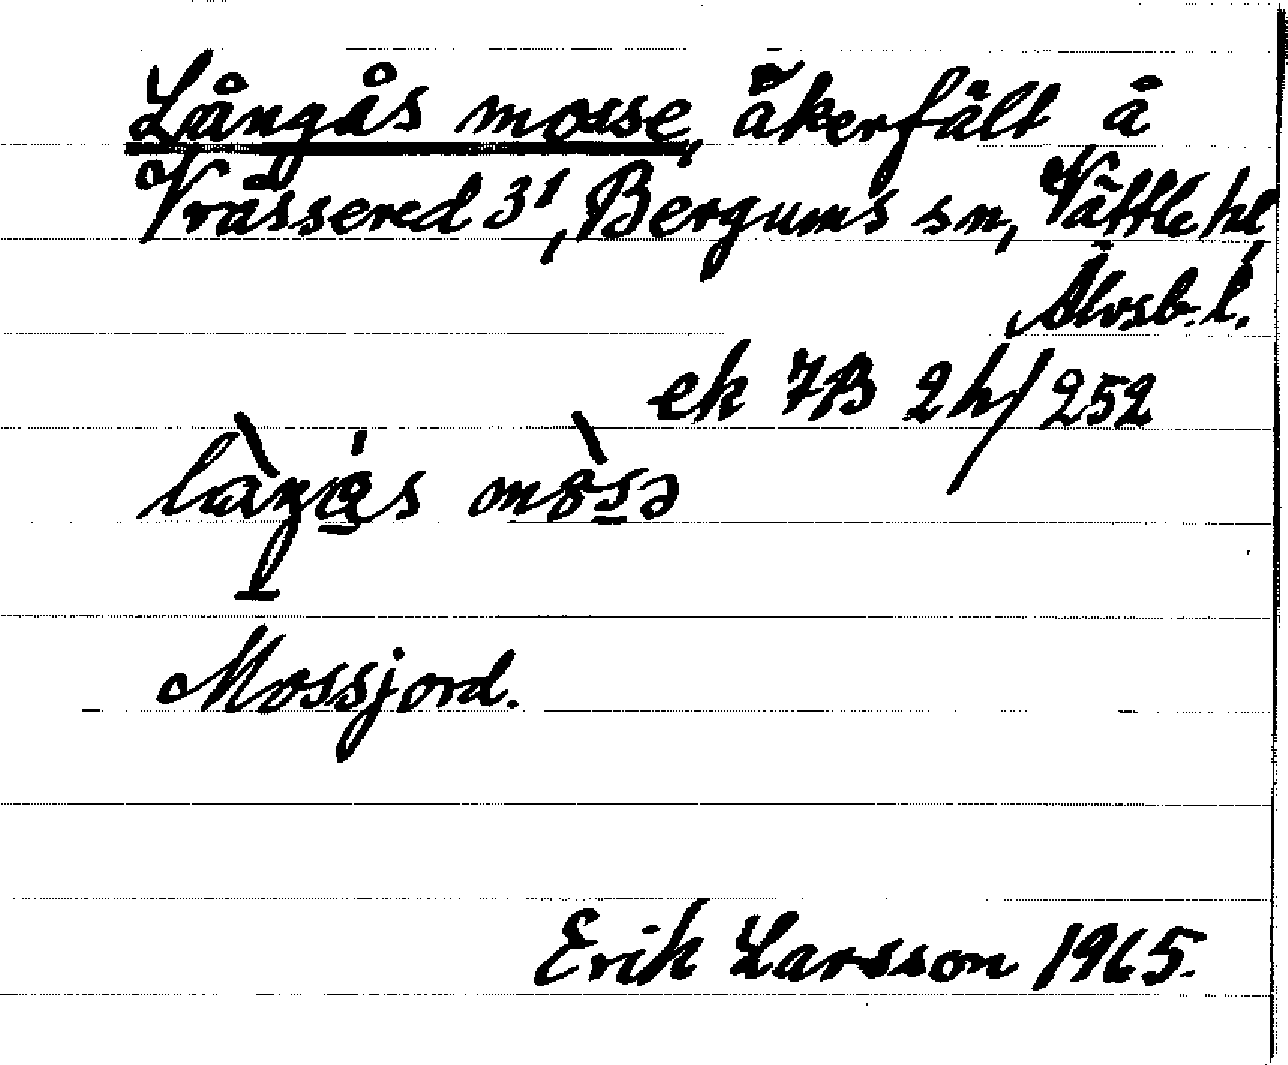 Långås mosse, åkerfält å
Vråssered 3¹, Bergums sn, Vättle hd
Älvsb. l.
ek 7B 2h/252
Mossjord.
Erik Larsson 1965.